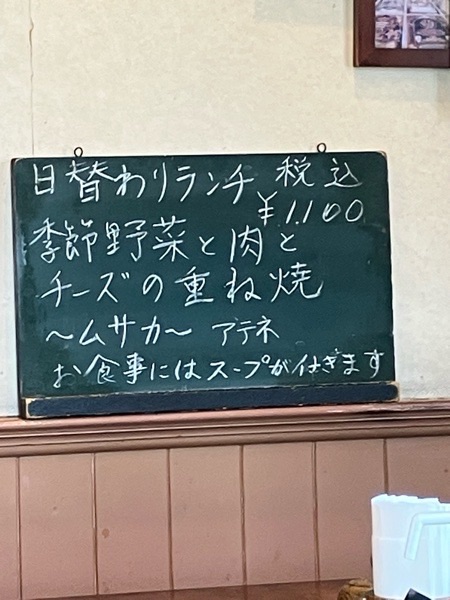 日替わりランチ 税込
¥1.100
季節野菜と肉と
チーズの重ね焼
〜ムサカ〜 アテネ
お食事にはスープが付ぎます